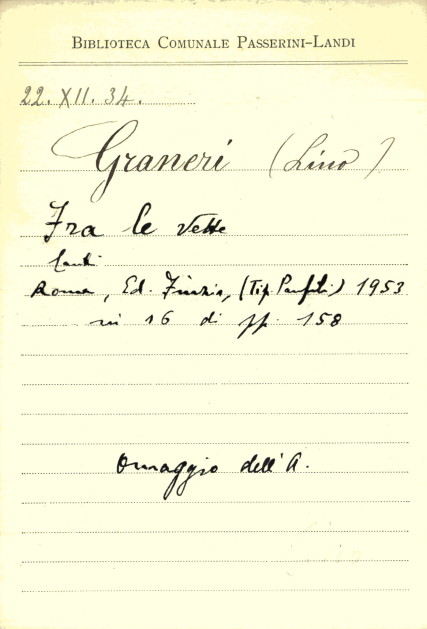 BIBLIOTECA COMUNALE PASSERINI-LANDI
22. XII. 34.
Graneri (Lino)
Fra le vette
Canti
Roma, Ed. (Tip. ) 1953
in 16 di pp. 158
Omaggio dell'A.